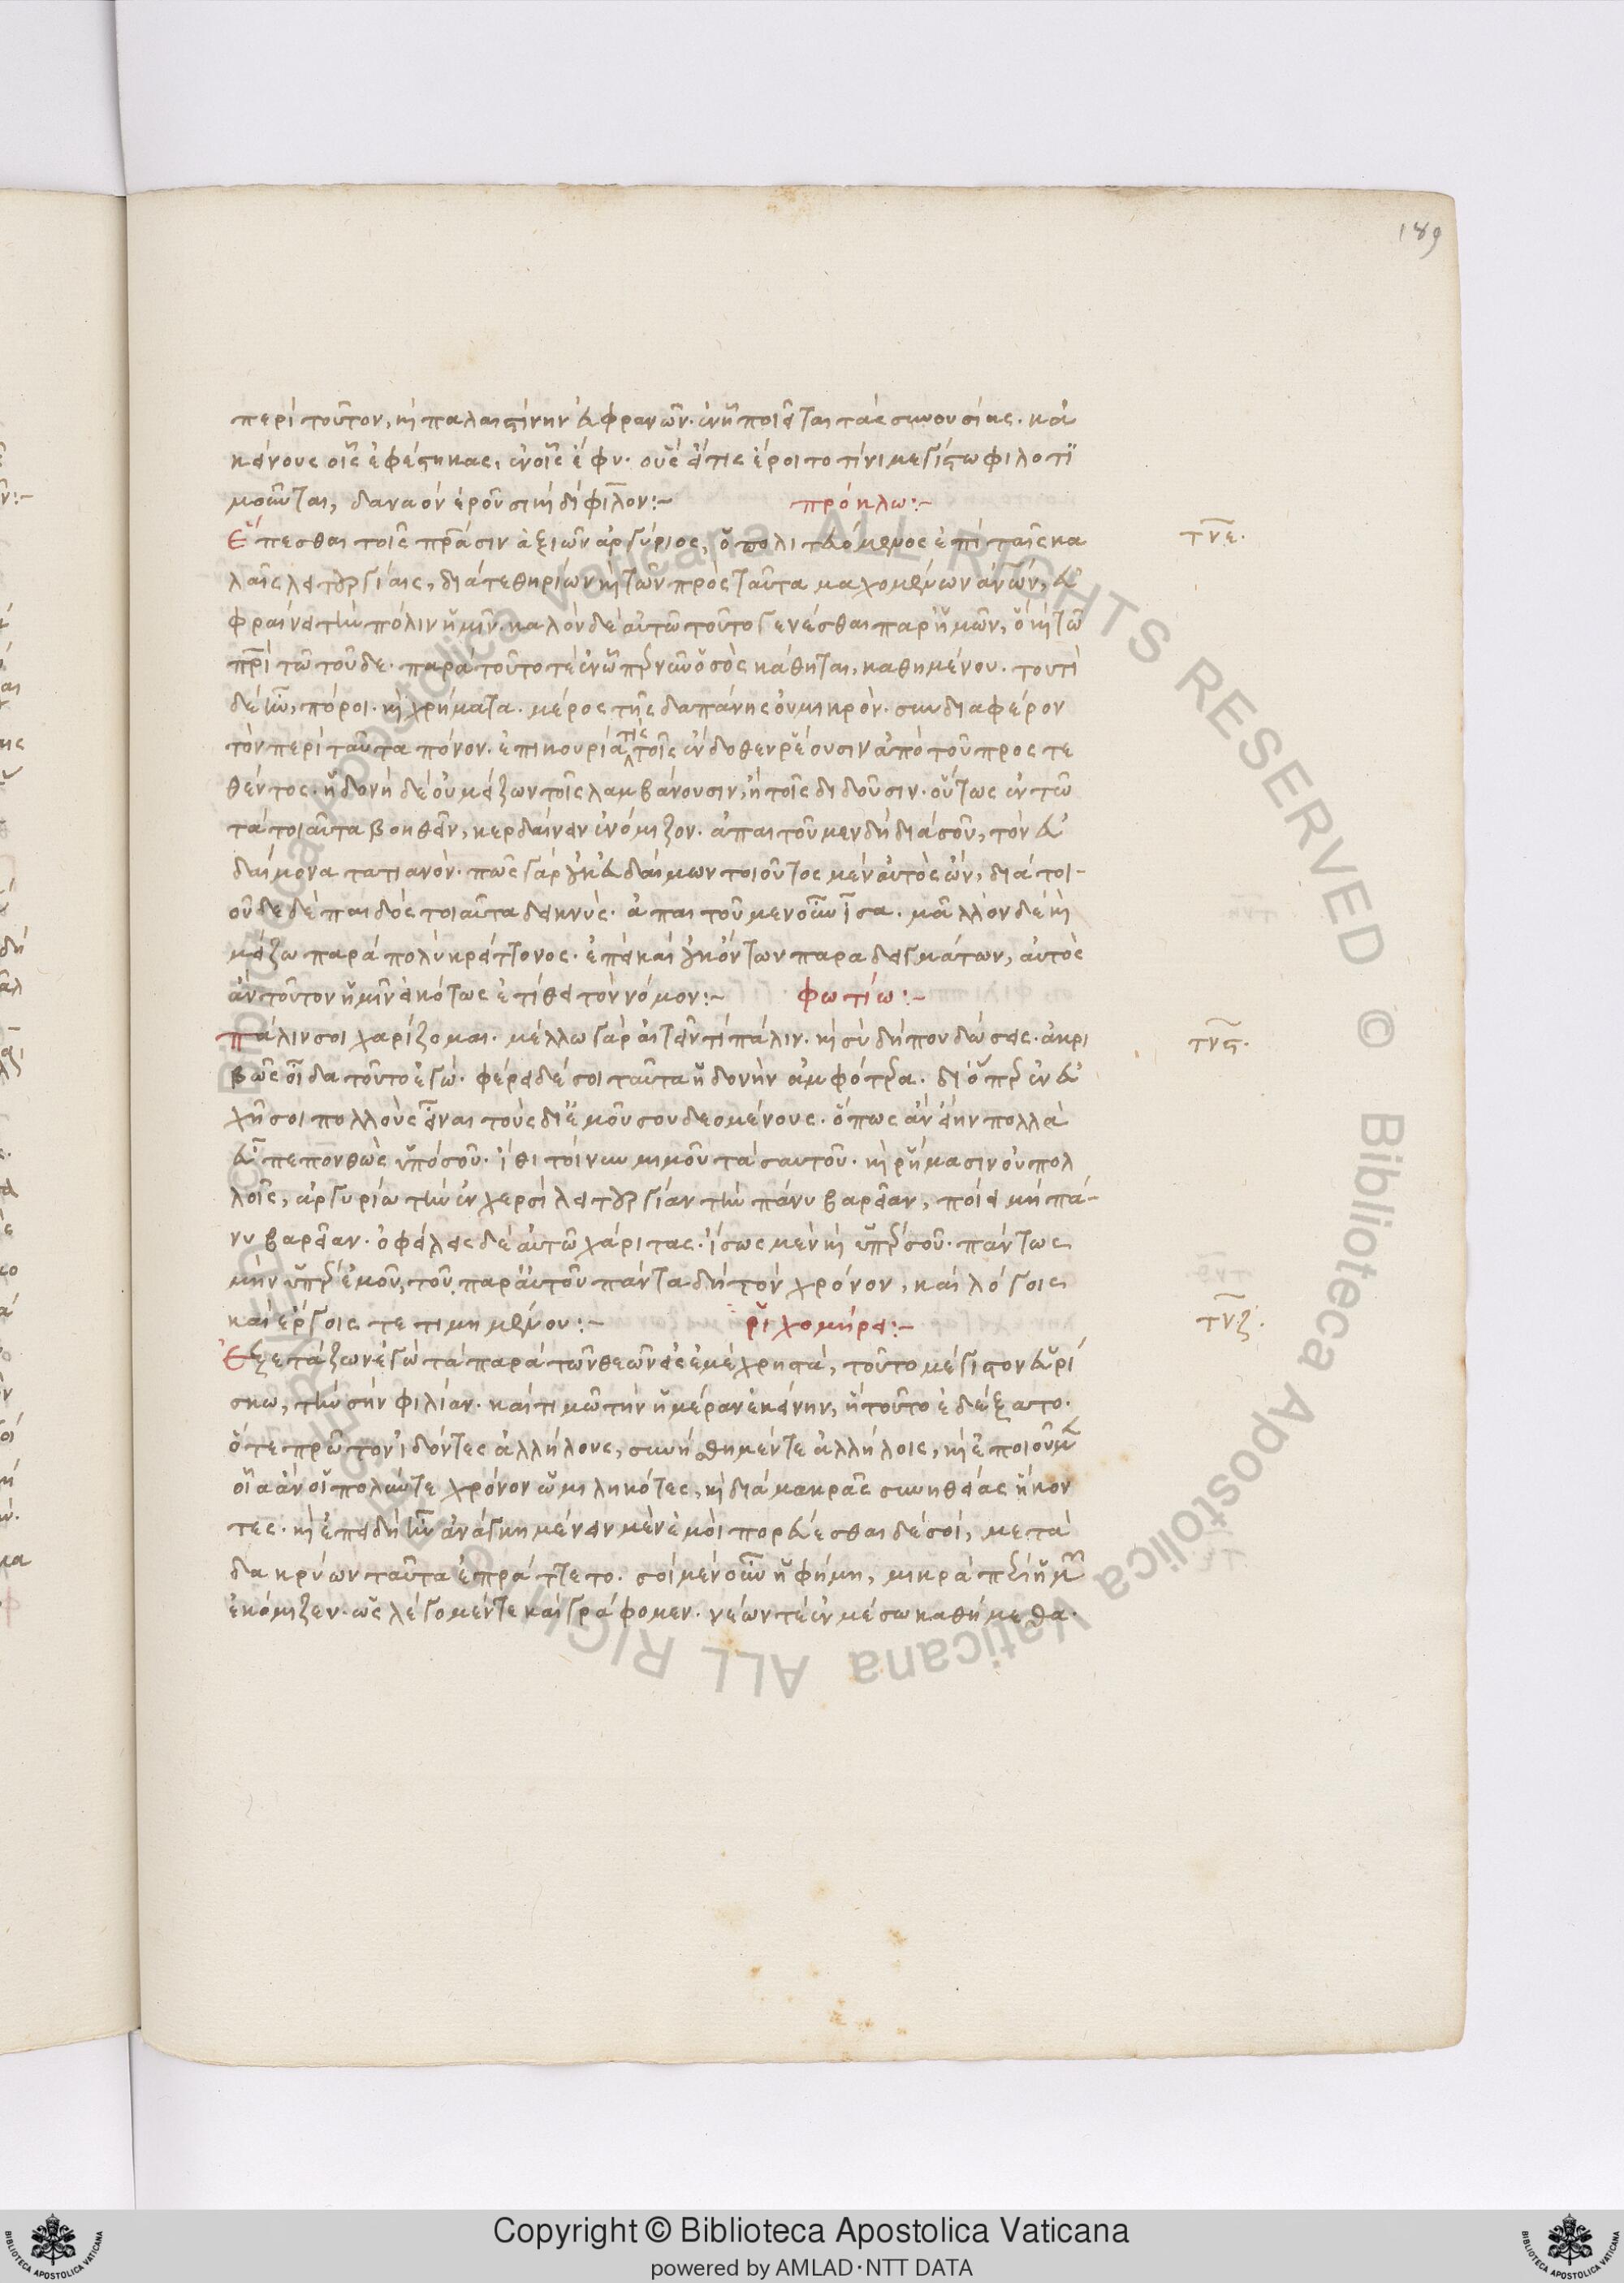 189
περὶ τοῦτον, καὶ παλαιστίνην εὐφρανῶν. ἐν ᾗ ποιεῖται τὰς συνουσίας. κἀ
κείνους οἷς ἐφέστηκας, ἐν οἷς ἔφυ. οὓς εἴ τις ἔροιτο τίνι μεγίστω φιλοτι
μοῦνται, δαναὸν ἐροῦσι καὶ δίφιλον:~ πρόκλω:~
Ἕπεσθαι τοῖς πράσιν ἀξιῶν ἀργύριος, ὁ πολιτευόμενος ἐπὶ ταῖς κα τνε.
λαῖς λειτουργίαις, διά τε θηρίων καὶ τῶν πρὸς ταῦτα μαχομένων ἀνῶν, εὐ
φραίνει τὴν πόλιν ἡμῖν. καλὸν δὲ αὐτῶ τοῦτο γενέσθαι παρ' ἡμῶν, ὃ καὶ τῶ
πρὶ τῶ τοῦδε. παρὰ τοῦτό τε ἐν ὧπερ νῦν ὁ σὸς κάθηται, καθημένου. τουτὶ
δὲ ἦν, πόροι. καὶ χρήματα. μέρος τῆς δαπάνης οὐ μικρὸν. συνδιαφέρον
τὸν περὶ ταῦτα πόνον. ἐπικουρία τις τοῖς ἔνδοθεν ῥέουσιν ἀπὸ τοῦ προστε
θέντος. ἡδονὴ δὲ οὐ μείζων τοῖς λαμβάνουσιν, ἢ τοῖς διδοῦσιν. οὕτως ἐν τῶ
τὰ τοιαῦτα βοηθεῖν, κερδαίνειν ἐνόμιζον. ἀπαιτοῦμεν δὴ διὰ σοῦ, τὸν εὐ
δαίμονα τατιανὸν. πῶς γὰρ οὐκ εὐδαίμων τοιοῦτος μὲν αὐτὸς ὢν, διὰ τοι-
οῦδε δὲ παιδὸς τοιαῦτα δεικνὺς. ἀπαιτοῦμεν οὖν ἴσα. μᾶλλον δὲ καὶ
μείζω παρὰ πολὺ κρείττονος. ἐπεὶ καὶ οὐκ ὄντων παραδειγμάτων, αὐτὸς
ἂν τοῦτον ἡμῖν εἰκότως ἐτίθει τὸν νόμον:~ φωτίω:~
Πάλιν σοι χαρίζομαι. μέλλω γὰρ αἰτεῖν τι πάλιν. καὶ σὺ δήπου δώσεις. ἀκρι τνϛ.
βῶς οἶδα τοῦτο ἐγώ. φέρει δέ σοι ταῦτα ἡδονὴν ἀμφότερα. διόπερ ἐν εὐ
χῆ σοι πολλοὺς εἶναι τοὺς δι' ἐμοῦ σου δεομένους. ὅπως ἂν εἴην πολλὰ
εὖ πεπονθὼς ὑπὸ σοῦ. ἴθι τοίνυν μιμοῦ τὰ σαυτοῦ. καὶ ῥήμασιν οὐ πολ
λοῖς, ἀργυρίω τὴν ἐν χερσὶ λειτουργίαν τὴν πάνυ βαρεῖαν, ποίει μὴ πά-
νυ βαρεῖαν. ὀφείλεις δὲ αὐτῶ χάριτας. ἴσως μὲν καὶ ὑπὲρ σοῦ. πάντως
μὴν ὑπὲρ ἐμοῦ, τοῦ παρ' αὐτοῦ πάντα δὴ τὸν χρόνον, καὶ λόγοις
καὶ ἔργοις τετιμημένου:~ ῥιχομήρει:~ τνζ.
Ἐξετάζων ἐγὼ τὰ παρὰ τῶν θεῶν εἰς ἐμὲ χρηστά, τοῦτο μέγιστον εὑρί
σκω, τὴν σὴν φιλίαν. καὶ τιμῶ τὴν ἡμέραν ἐκείνην, ἣ τοῦτο ἐδείξατο.
ὅτε πρῶτον ἰδόντες ἀλλήλους, συνήσθημέν τε ἀλλήλοις, καὶ ἐποιοῦμεν
οἷα ἂν οἱ πολύν τε χρόνον ὡμιληκότες, καὶ διὰ μακρᾶς συνηθείας ἥκον
τες. καὶ ἐπειδὴ ἦν ἀνάγκη μένειν μὲν ἐμοὶ πορεύεσθαι δὲ σοί, μετὰ
δακρύων ταῦτα ἐπράττετο. σοὶ μὲν οὖν ἡ φήμη, μικρὰ περὶ ἡμῶν
ἐκόμιζεν. ὡς λέγομέν τε καὶ γράφομεν. νέων τε ἐν μέσω καθήμεθα.
Copyright © Biblioteca Apostolica Vaticana
powered by AMLAD·NTT DATA